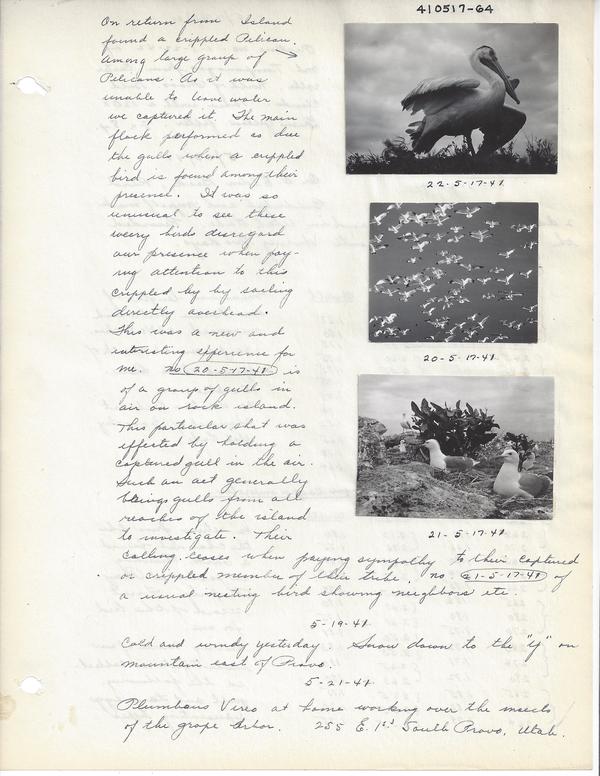 410517-64
On return from Island
found a crippled Pelican.
Among large group of
Pelicans. As it was
unable to leave water
we captured it. The main
flock performed as due
the gulls when a crippled
bird is found among their
presence. It was so
unusual to see these
weery birds disregard
our presence when pay-
ing attention to this
crippled by by sailing
directly overhead.
This was a new and
interesting experience for
me. no 20-5-17-41 is
of a group of gulls in
air on rock island.
This particular shot was
effected by holding a
captured gull in the air.
Such an act generally
brings gulls from all
reaches of the island
to investigate. Their
calling ceases when paying sympathy to their captured
or crippled member of their tribe. no. 21-5-17-41 of
a usual nesting bird showing neighbors etc.
22-5-17-41
20-5-17-41
21-5-17-41
5-19-41
Cold and windy yesterday. Snow down to the "Y" on
mountain east of Provo.
5-21-41
Plumbous Vireo at home working over the insects
of the grape arbor. 255 E. 1st South Provo, Utah.